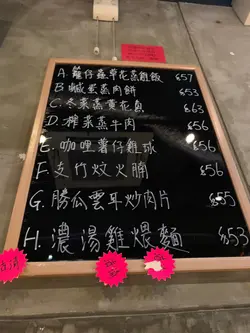 A. 籠仔蟲草花蒸雞飯 $57
B. 鹹蛋蒸肉餅 $53
C. 冬菜蒸黃花魚 $63
D. 榨菜蒸牛肉 $56
E. 咖哩薯仔雞球 $56
F. 支竹炆火腩 $56
G. 勝瓜雲耳炒肉片 $55
H. 濃湯雞煨麵 $53